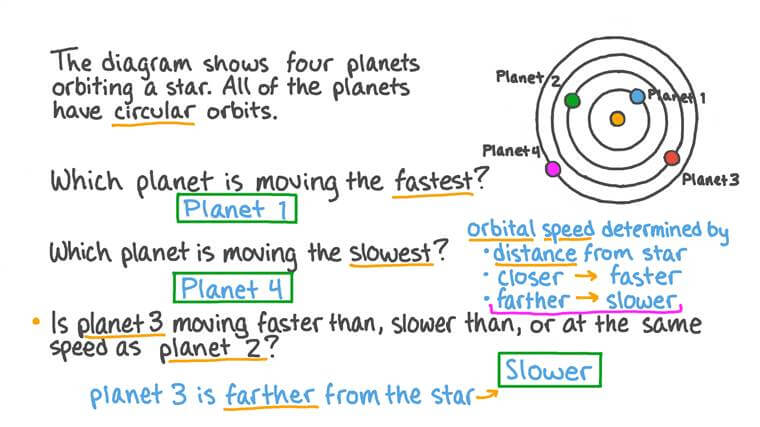 The diagram shows four planets
orbiting a star. All of the planets
have circular orbits.
Planet 2
Planet 1
Planet 4
Planet 3
Which planet is moving the fastest?
Planet 1
Which planet is moving the slowest?
Planet 4
orbital speed determined by
• distance from star
• closer → faster
• farther → slower
• Is planet 3 moving faster than, slower than, or at the same
speed as planet 2?
Slower
planet 3 is farther from the star →